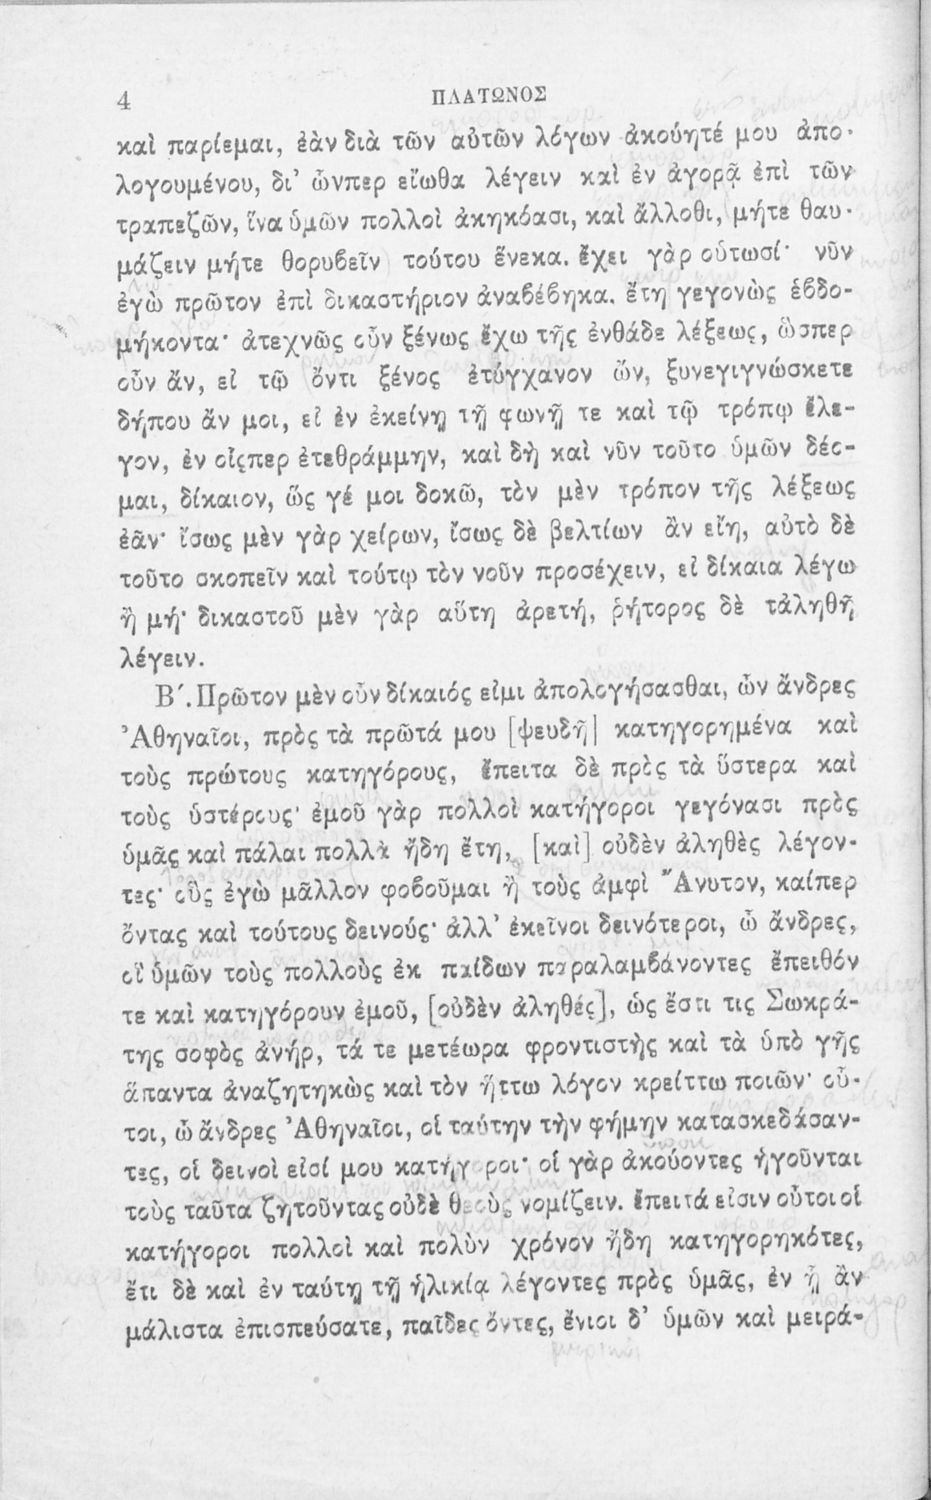 4 ΠΛΑΤΩΝΟΣ
καὶ παρίεμαι, ἐὰν διὰ τῶν αὐτῶν λόγων ἀκούητέ μου ἀπο-
λογουμένου, δι’ ὧνπερ εἴωθα λέγειν καὶ ἐν ἀγορᾷ ἐπὶ τῶν
τραπεζῶν, ἵνα ὑμῶν πολλοὶ ἀκηκόασι, καὶ ἄλλοθι, μήτε θαυ-
μάζειν μήτε θορυβεῖν τούτου ἕνεκα. ἔχει γὰρ οὑτωσί· νῦν
ἐγὼ πρῶτον ἐπὶ δικαστήριον ἀναβέβηκα. ἔτη γεγονὼς ἑβδο-
μήκοντα· ἀτεχνῶς οὖν ξένως ἔχω τῆς ἐνθάδε λέξεως, ὥσπερ
οὖν ἄν, εἰ τῷ ὄντι ξένος ἐτύγχανον ὤν, ξυνεγιγνώσκετε
δήπου ἄν μοι, εἰ ἐν ἐκείνῃ τῇ φωνῇ τε καὶ τῷ τρόπῳ ἔλε-
γον, ἐν οἷςπερ ἐτεθράμμην, καὶ δὴ καὶ νῦν τοῦτο ὑμῶν δέο-
μαι, δίκαιον, ὥς γέ μοι δοκῶ, τὸν μὲν τρόπον τῆς λέξεως
ἐᾶν· ἴσως μὲν γὰρ χείρων, ἴσως δὲ βελτίων ἂν εἴη, αὐτὸ δὲ
τοῦτο σκοπεῖν καὶ τούτῳ τὸν νοῦν προσέχειν, εἰ δίκαια λέγω
ἢ μή· δικαστοῦ μὲν γὰρ αὕτη ἀρετή, ῥήτορος δὲ τἀληθῆ
λέγειν.
Β΄. Πρῶτον μὲν οὖν δίκαιός εἰμι ἀπολογήσασθαι, ὦν ἄνδρες
Ἀθηναῖοι, πρὸς τὰ πρῶτά μου [ψευδῆ] κατηγορημένα καὶ
τοὺς πρώτους κατηγόρους, ἔπειτα δὲ πρὸς τὰ ὕστερα καὶ
τοὺς ὑστέρους· ἐμοῦ γὰρ πολλοὶ κατήγοροι γεγόνασι πρὸς
ὑμᾶς καὶ πάλαι πολλὰ ἤδη ἔτη, [καὶ] οὐδὲν ἀληθὲς λέγον-
τες· οὓς ἐγὼ μᾶλλον φοβοῦμαι ἢ τοὺς ἀμφὶ Ἄνυτον, καίπερ
ὄντας καὶ τούτους δεινούς· ἀλλ’ ἐκεῖνοι δεινότεροι, ὦ ἄνδρες,
οἳ ὑμῶν τοὺς πολλοὺς ἐκ παίδων παραλαμβάνοντες ἔπειθόν
τε καὶ κατηγόρουν ἐμοῦ, [οὐδὲν ἀληθές], ὡς ἔστι τις Σωκρά-
της σοφὸς ἀνήρ, τά τε μετέωρα φροντιστὴς καὶ τὰ ὑπὸ γῆς
ἅπαντα ἀναζητηκὼς καὶ τὸν ἥττω λόγον κρείττω ποιῶν· οὗ-
τοι, ὦ ἄνδρες Ἀθηναῖοι, οἱ ταύτην τὴν φήμην κατασκεδάσαν-
τες, οἱ δεινοί εἰσί μου κατήγοροι· οἱ γὰρ ἀκούοντες ἡγοῦνται
τοὺς ταῦτα ζητοῦντας οὐδὲ θεοὺς νομίζειν. ἔπειτά εἰσιν οὗτοι οἱ
κατήγοροι πολλοὶ καὶ πολὺν χρόνον ἤδη κατηγορηκότες,
ἔτι δὲ καὶ ἐν ταύτῃ τῇ ἡλικίᾳ λέγοντες πρὸς ὑμᾶς, ἐν ᾗ ἂν
μάλιστα ἐπισπεύσατε, παῖδες ὄντες, ἔνιοι δ’ ὑμῶν καὶ μειρά-